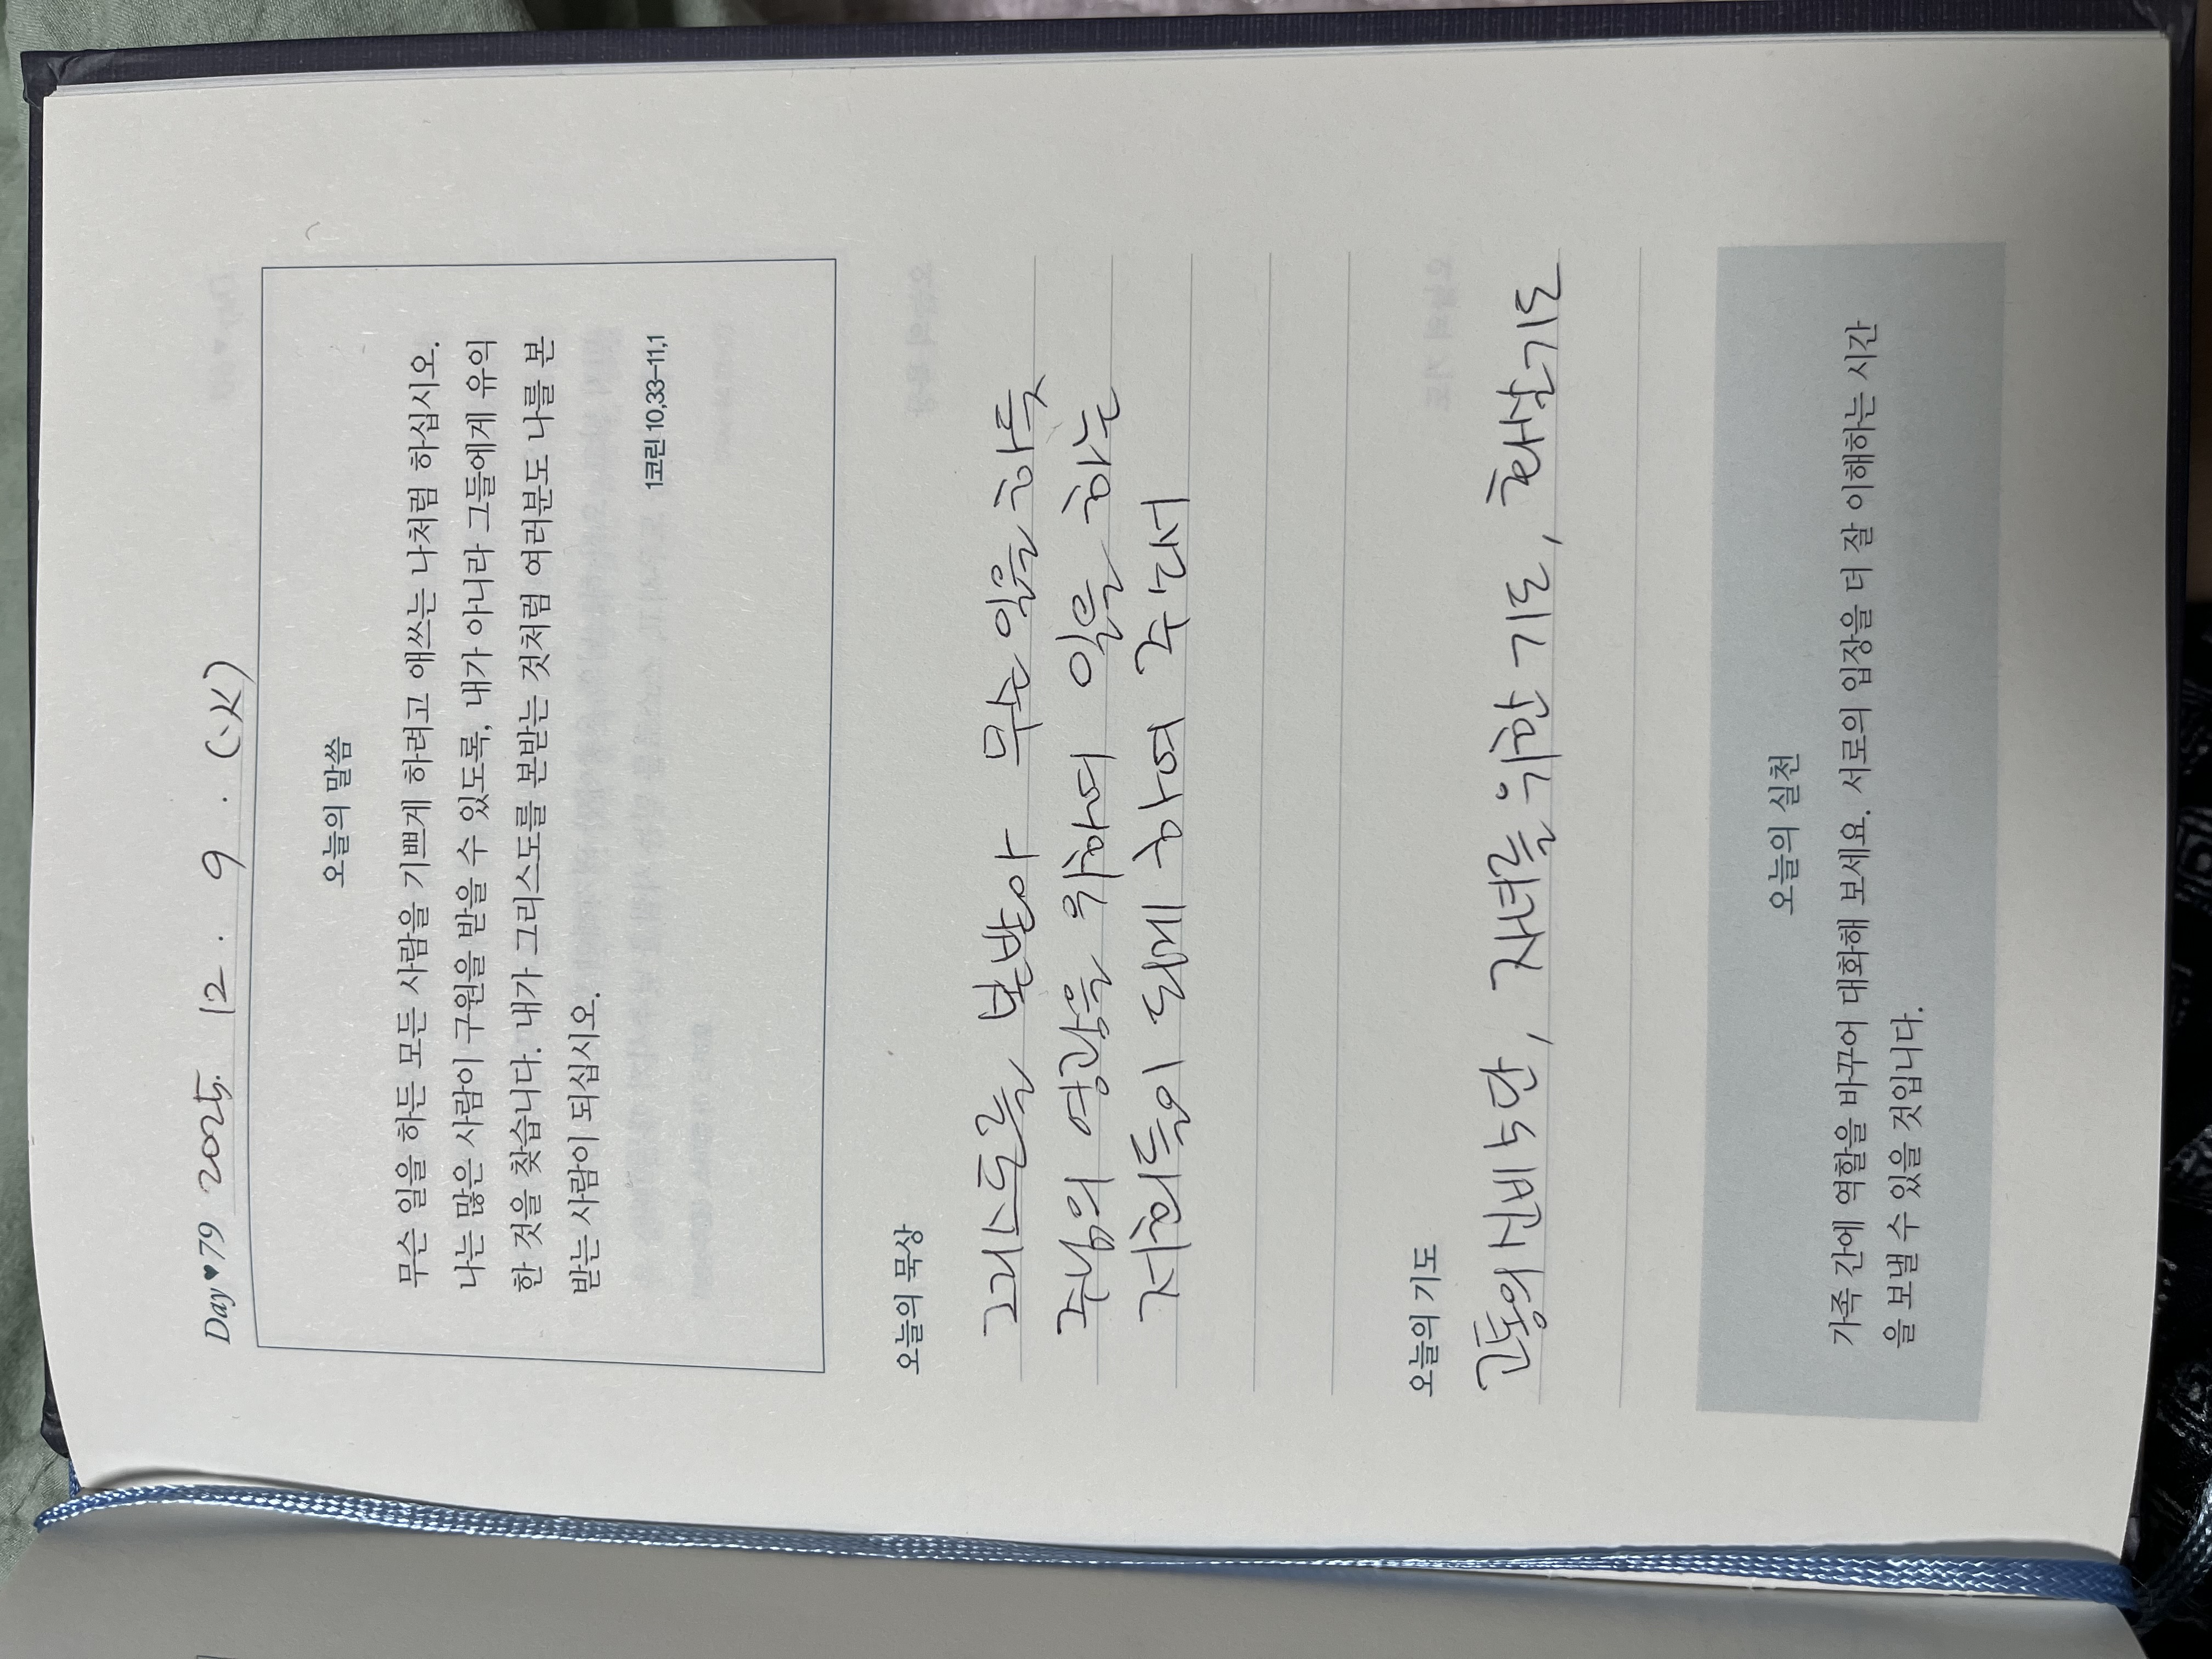 Day♥79 2025. 12. 9. (火)
오늘의 말씀
무슨 일을 하든 모든 사람을 기쁘게 하려고 애쓰는 나처럼 하십시오.
나는 많은 사람이 구원을 받을 수 있도록, 내가 아니라 그들에게 유익
한 것을 찾습니다. 내가 그리스도를 본받는 것처럼 여러분도 나를 본
받는 사람이 되십시오.
1코린 10,33-11,1
오늘의 묵상
그리스도를 본받아 무슨 일을 하든
주님의 영광을 위하여 일을 하는
저희들이 되게 하여 주소서
오늘의 기도
고통의 신비 5단, 자녀를 위한 기도, 화살기도
오늘의 실천
가족 간에 역할을 바꾸어 대화해 보세요. 서로의 입장을 더 잘 이해하는 시간
을 보낼 수 있을 것입니다.